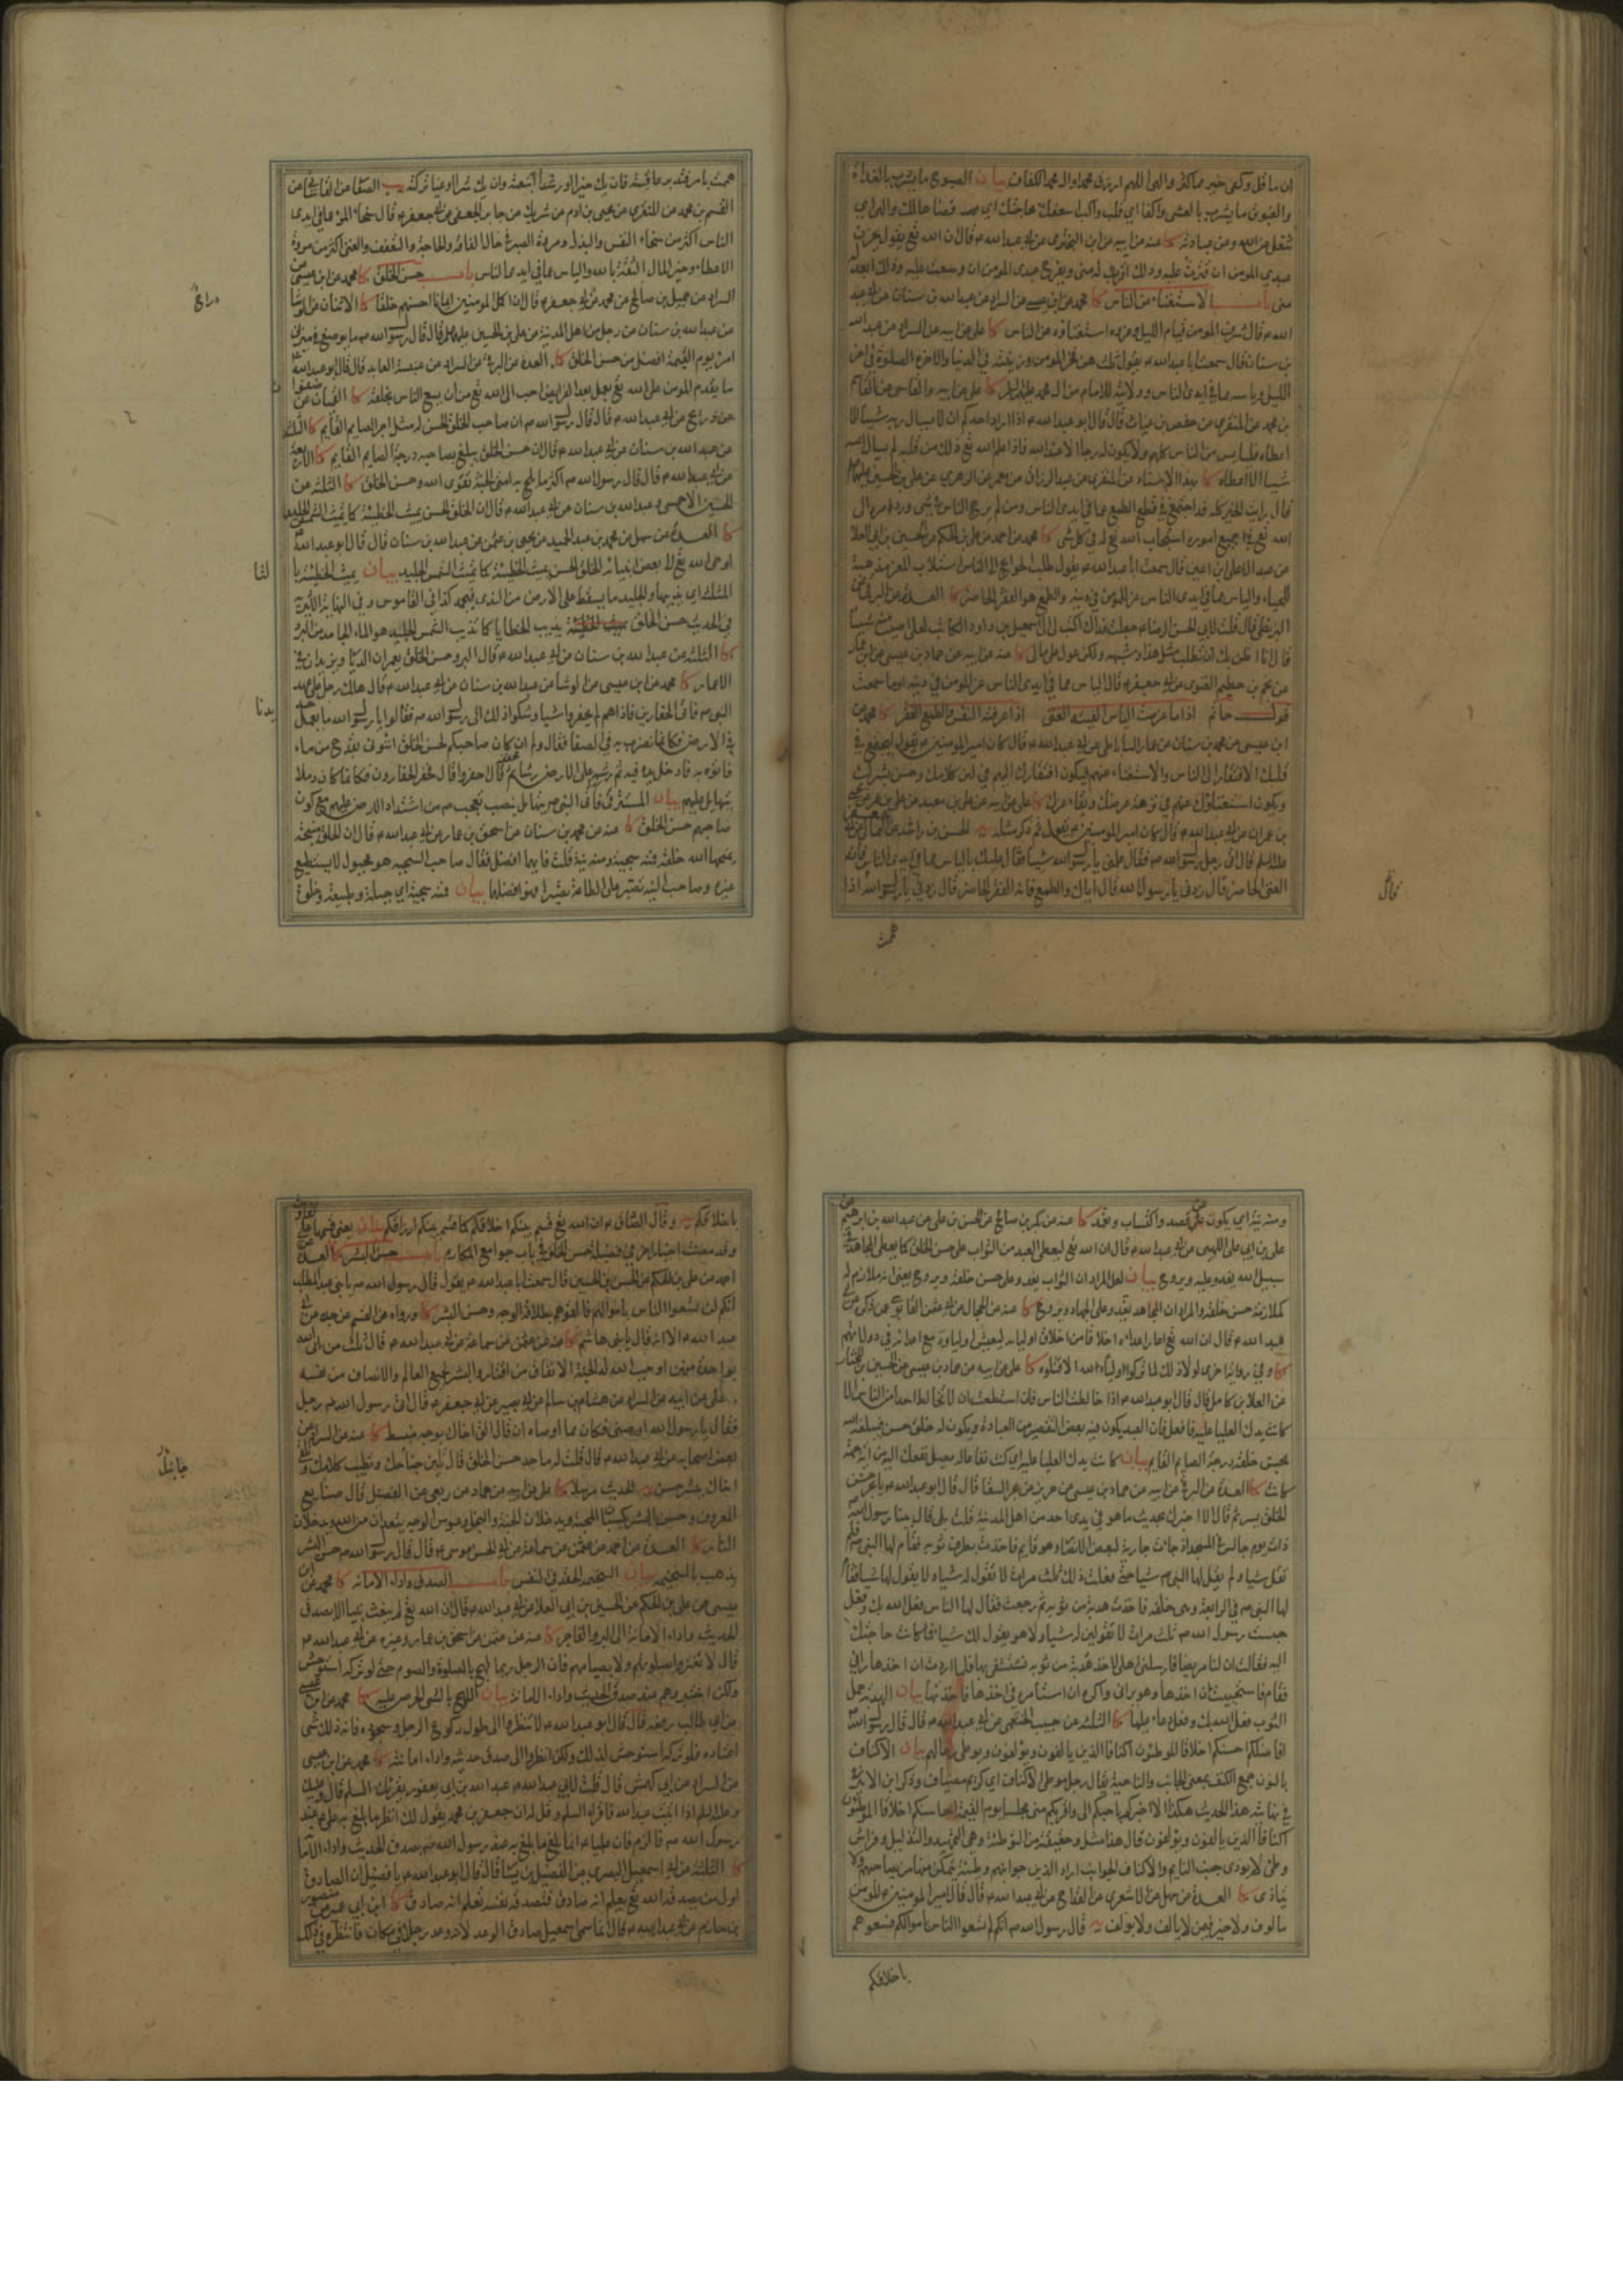 ان ما قل وكفى خير مما كثر والهى اللهم ارزق محمدا وال محمد الكفاف بيان الصبوح ما يشرب بالغداة
والغبوق ما يشرب بالعشى
شغل عن الله وعن عبادته كا عنه عن ابيه عن ابن البخترى عن ابى عبد الله ع قال ان الله تع يقول يحزن
عبدى المومن ان قترت عليه وذلك اقرب له منى ويفرح عبدى المومن ان وسعت عليه وذلك ابعد له
منى باب الاستغناء عن الناس كا محمد عن ابن عيسى عن السراد عن عبد الله بن سنان عن ابى عبد
الله ع قال شرف المومن قيام الليل وعزه استغناؤه عن الناس كا على عن ابيه عن السراد عن عبد الله
بن سنان قال سمعت ابا عبد الله ع يقول ثلث هن فخر المومن وزينته فى الدنيا والاخرة الصلوة فى اخر
الليل وياسه مما فى ايدى الناس وولايته للامام من ال محمد كا على عن ابيه والقاسانى عن القاسم
بن محمد عن المنقرى عن حفص بن غياث قال قال ابو عبد الله ع اذا اراد احدكم ان لا يسال ربه شيئا الا
اعطاه فلييأس من الناس كلهم ولا يكون له رجا الا عند الله فاذا علم الله تع ذلك من قلبه لم يسال الله
شيئا الا اعطاه كا بهذا الاسناد عن المنقرى عن عبد الرزاق عن معمر عن الزهرى عن على بن الحسين
قال رايت الخير كله قد اجتمع فى قطع الطمع عما فى ايدى الناس ومن لم يرج الناس فى شى ورد امره الى
الله تع فى جميع اموره استجاب الله تع له فى كل شى كا محمد عن احمد عن على بن الحكم عن الحسين بن ابى العلا
عن عبد الاعلى بن اعين قال سمعت ابا عبد الله ع يقول طلب الحوايج الى الناس استلاب للعز مذهبة
للحياء والياس مما فى ايدى الناس عز للمومن فى دينه والطمع هو الفقر الحاضر كا العدة عن البرقى عن
البزنطى قال قلت لابى الحسن الرضا ع جعلت فداك اكتب لى الى اسمعيل بن داود الكاتب لعلى اصيب منه شيئا
قال انا اظن بك ان تطلب مثل هذا وشبهه ولكن عول على مالى كا عنه عن ابيه عن حماد بن عيسى عن ابن عمار
عن نجم بن حطيم الغنوى عن ابى جعفر ع قال الياس مما فى ايدى الناس عز للمومن فى دينه اوما سمعت
قول حاتم اذا ما عزمت الياس الفيته الغنى اذا عرفته النفس والطمع الفقر كا محمد عن
ابن عيسى عن محمد بن سنان عن عمار الساباطى عن ابى عبد الله ع قال كان امير المومنين ع يقول ليجتمع فى
قلبك الافتقار الى الناس والاستغناء عنهم فيكون افتقارك اليهم فى لين كلامك وحسن بشرك
ويكون استغناؤك عنهم فى نزهة عرضك وبقاء عزك كا على عن ابيه عن على بن معبد عن على بن عمر عن يحيى
بن عمران عن ابى عبد الله ع قال كان امير المومنين ع يقول ثم ذكر مثله يه الحسن بن راشد عن الثمالى عن ابى جعفر
عليه السلم قال اتى رجل رسول الله ص فقال علمنى يا رسول الله شيئا فقال عليك بالياس مما فى ايدى الناس فانه
الغنى الحاضر قال زدنى يا رسول الله قال اياك والطمع فانه الفقر الحاضر قال زدنى يا رسول الله قال اذا
هممت
هممت بامر فتدبر عاقبته فان يك خيرا او رشدا اتبعته وان يك شرا او غيا تركته يب الصفار عن القاسانى عن
القسم بن محمد عن المنقرى عن يحيى بن ادم عن شريك عن جابر الجعفى عن ابى جعفر ع قال سخاء المرء عما فى ايدى
الناس اكثر من سخاء النفس والبذل ومروة الصبر فى حال الفاقة والحاجة والتعفف والغنى اكثر من مروة
الاعطاء وخير المال الثقة بالله والياس مما فى ايدى الناس باب حسن الخلق كا محمد عن ابن عيسى عن
السراد عن جميل بن صالح عن محمد عن ابى جعفر ع قال ان اكمل المومنين ايمانا احسنهم خلقا كا الاثنان عن الوشا
عن عبد الله بن سنان عن رجل من اهل المدينة عن على بن الحسين عليهما السلم قال قال رسول الله ص ما يوضع فى ميزان
امرئ يوم القيمة افضل من حسن الخلق كا العدة عن البرقى عن السراد عن عنبسة العابد قال قال ابو عبد الله ع
ما يقدم المومن على الله تع بعمل بعد الفرايض احب الى الله تع من ان يسع الناس بخلقه كا القميان عن صفوان
عن ذريح عن ابى عبد الله ع قال قال رسول الله ص ان صاحب الخلق الحسن له مثل اجر الصايم القايم كا الثلثة
عن عبد الله بن سنان عن ابى عبد الله ع قال ان حسن الخلق يبلغ بصاحبه درجة الصايم القايم كا الاربعة
عن ابى عبد الله ع قال قال رسول الله ص اكثر ما يلج به امتى الجنة تقوى الله وحسن الخلق كا الثلثة عن
الحسين الاحمسى وعبد الله بن سنان عن ابى عبد الله ع قال ان الخلق الحسن يميث الخطيئة كما تميث الشمس الجليد
كا العدة عن سهل عن محمد بن عبد الحميد عن يحيى بن عمرو عن عبد الله بن سنان قال قال ابو عبد الله ع
اوحى الله تع الى بعض انبيائه الخلق الحسن يميث الخطيئة كما تميث الشمس الجليد بيان يميث الخطيئة با
المثلثة اى يذيبها والجليد ما يسقط على الارض من الندى فيجمد كذا فى القاموس وفى النهاية الاثيرية
فى الحديث حسن الخلق يذيب الخطايا كما تذيب الشمس الجليد هو الماء الجامد من البرد
كا الثلثة عن عبد الله بن سنان عن ابى عبد الله ع قال البر وحسن الخلق يعمران الديار ويزيدان فى
الاعمار كا محمد عن ابن عيسى عن الوشا عن عبد الله بن سنان عن ابى عبد الله ع قال هلك رجل على عهد
النبى ص فاتى الحفارين فاذا هم لم يحفروا شيئا وشكوا ذلك الى رسول الله ص فقالوا يا رسول الله ما يعمل حديدنا
فى الارض فكانما نضرب به فى الصفا فقال ولم ان كان صاحبكم لحسن الخلق ايتونى بقدح من ماء
فاتوه به فادخل يده فيه ثم رشه على الارض رشا ثم قال احفروا قال فحفر الحفارون فكانما كان رملا
يتهايل عليهم بيان
صاحبهم حسن الخلق كا عنه عن محمد بن سنان عن اسحق بن عمار عن ابى عبد الله ع قال ان الخلق منيحة
يمنحها الله خلقه فمنه سجية ومنه نية قلت فايهما افضل فقال صاحب السجية هو مجبول لا يستطيع
غيره وصاحب النية تصبر على الطاعة تصبرا فهو افضلهما بيان فمنه سجية اى جبلة وطبيعة وخلق
ومنه نية اى يكون عن قصد واكتساب وتعمد كا عنه عن بكر بن صالح عن الحسن بن على عن عبد الله بن ابرهيم عن
على بن ابى على اللهبى عن ابى عبد الله ع قال ان الله تع ليعطى العبد من الثواب على حسن الخلق كما يعطى المجاهد فى
سبيل الله يغدو عليه ويروح بيان لعل المراد ان الثواب يغدو على حسن خلقه ويروح يعنى انه ملازم له
كملازمة حسن خلقه او المراد ان المجاهد يغدو على الجهاد ويروح كا عنه عن الحجال عن ابى عثمن القابوسى عمن ذكره عن ابى
عبد الله ع قال ان الله تع اعار اعداءه اخلاقا من اخلاق اوليائه ليعيش اولياؤه مع اعدائه فى دولاتهم
كا وفى رواية اخرى لولا ذلك لما تركوا وليا لله الا قتلوه كا على عن ابيه عن حماد بن عيسى عن الحسين بن المختار
عن العلا بن كامل قال قال ابو عبد الله ع اذا خالطت الناس فان استطعت ان لا تخالط احدا من الناس الا
كانت يدك العليا عليه فافعل فان العبد يكون فيه بعض التقصير من العبادة ويكون له خلق حسن فيبلغه الله
بحسن خلقه درجة الصايم القايم بيان
كا العدة عن البرقى عن ابيه عن حماد بن عيسى عن حريز عن بحر السقا قال قال ابو عبد الله ع يا بحر حسن
الخلق يسر ثم قال الا اخبرك بحديث ما هو فى يدى احد من اهل المدينة قلت بلى قال بينا رسول الله ص
ذات يوم جالس فى المسجد اذ جاءت جارية لبعض الانصار وهو قايم فاخذت بطرف ثوبه فقام لها النبى ص فلم
تقل شيئا ولم يقل لها النبى ص شيئا حتى فعلت ذلك ثلث مرات لا تقول له شيئا ولا يقول لها شيئا فقام
لها النبى ص فى الرابعة وهى خلفه فاخذت هدبة من ثوبه ثم رجعت فقال لها الناس فعل الله بك وفعل
حبست رسول الله ص ثلث مرات لا تقولين له شيئا ولا هو يقول لك شيئا ما كانت حاجتك
اليه فقالت ان لنا مريضا فارسلنى اهلى لاخذ هدبة من ثوبه تستشفى بها فلما اردت ان اخذها رانى
فقام فاستحييت ان اخذها وهو يرانى واكره ان استامره فى اخذها فاخذتها بيان الهدبة خمل
الثوب كا الثلثة عن حبيب الخثعمى عن ابى عبد الله ع قال قال رسول الله ص
افاضلكم احسنكم اخلاقا الموطئون اكنافا الذين يالفون ويؤلفون وتوطى رحالهم بيان الاكناف
بالنون جمع الكنف بمعنى الجانب والناحية يقال رجل موطى الاكناف اى كريم مضياف وذكر ابن الاثير
فى نهايته هذا الحديث هكذا الا اخبركم باحبكم الى واقربكم منى مجلسا يوم القيمة احاسنكم اخلاقا الموطئون
اكنافا الذين يالفون ويؤلفون قال هذا مثل وحقيقته من التوطئة وهى التمهيد والتذليل وفراش
وطى لا يوذى جنب النايم والاكناف الجوانب اراد الذين جوانبهم وطيئة يتمكن منها من يصاحبهم ولا
يتاذى كا العدة عن سهل عن الاشعرى عن القداح عن ابى عبد الله ع قال قال امير المومنين ع المومن
مالوف ولا خير فيمن لا يالف ولا يؤلف يه قال رسول الله ص انكم لم تسعوا الناس باموالكم فسعوهم
باخلاقكم
باخلاقكم يه وقال الصادق ع ان الله تع قسم بينكم اخلاقكم كما قسم بينكم ارزاقكم بيان
وقد مضت اخبار اخر فى فضيلة حسن الخلق فى باب جوامع المكارم باب حسن البشر كا العدة عن
احمد عن على بن الحكم عن الحسن بن الحسين قال سمعت ابا عبد الله ع يقول قال رسول الله ص يا بنى عبد المطلب
انكم لن تسعوا الناس باموالكم فالقوهم بطلاقة الوجه وحسن البشر كا ورواه عن القسم عن جده عن ابى
عبد الله ع الا انه قال يا بنى هاشم كا عنه عن عثمن عن سماعة عن ابى عبد الله ع قال ثلث من اتى الله
بواحدة منهن اوجب الله له الجنة الانفاق من اقتار والبشر لجميع العالم والانصاف من نفسه
على عن ابيه عن السراد عن هشام بن سالم عن ابى بصير عن ابى جعفر ع قال اتى رسول الله ص رجل
فقال يا رسول الله اوصنى فكان مما اوصاه ان قال الق اخاك بوجه منبسط كا عنه عن السراد عن
بعض اصحابه عن ابى عبد الله ع قال قلت له ما حد حسن الخلق قال تلين جناحك وتطيب كلامك وتلقى
اخاك ببشر حسن يه الحديث مرسلا كا على عن ابيه عن حماد عن ربعى عن الفضيل قال صنايع
المعروف وحسن البشر يكسبان المحبة ويدخلان الجنة والبخل وعبوس الوجه يبعدان من الله ويدخلان
النار كا العدة عن احمد عن عثمن عن سماعة عن ابى الحسن موسى ع قال قال رسول الله ص حسن البشر
يذهب بالسخيمة بيان السخيمة الحقد فى النفس باب الصدق واداء الامانة كا محمد عن ابن
عيسى عن على بن الحكم عن الحسين بن ابى العلا عن ابى عبد الله ع قال ان الله تع لم يبعث نبيا الا بصدق
الحديث واداء الامانة الى البر والفاجر كا عنه عن عثمن عن اسحق بن عمار وغيره عن ابى عبد الله ع
قال لا تغتروا بصلوتهم ولا بصيامهم فان الرجل ربما لهج بالصلوة والصوم حتى لو تركه استوحش
ولكن اختبروهم عند صدق الحديث واداء الامانة بيان اللهج بالشى الحرص عليه كا محمد عن ابن عيسى
عن ابى طالب رفعه قال قال ابو عبد الله ع لا تنظروا الى طول ركوع الرجل وسجوده فان ذلك شى
اعتاده فلو تركه استوحش لذلك ولكن انظروا الى صدق حديثه واداء امانته كا محمد عن ابن عيسى
عن السراد عن ابى كهمس قال قلت لابى عبد الله ع عبد الله بن ابى يعفور يقرئك السلم قال وعليك
وعليه السلم اذا اتيت عبد الله فاقرئه السلم وقل له ان جعفر بن محمد يقول لك انظر ما بلغ به على ع عند
رسول الله ص فالزمه فان عليا ع انما بلغ ما بلغ به عند رسول الله ص بصدق الحديث واداء الامانة
كا الثلثة عن ابى اسمعيل البصرى عن الفضيل بن يسار قال قال ابو عبد الله ع يا فضيل ان الصادق
اول من يصدقه الله تع يعلم انه صادق فتصدقه نفسه تعلم انه صادق كا ابن ابى عمير عن منصور
بن حازم عن ابى عبد الله ع قال انما سمى اسمعيل صادق الوعد لانه وعد رجلا فى مكان فانتظره فى ذلك